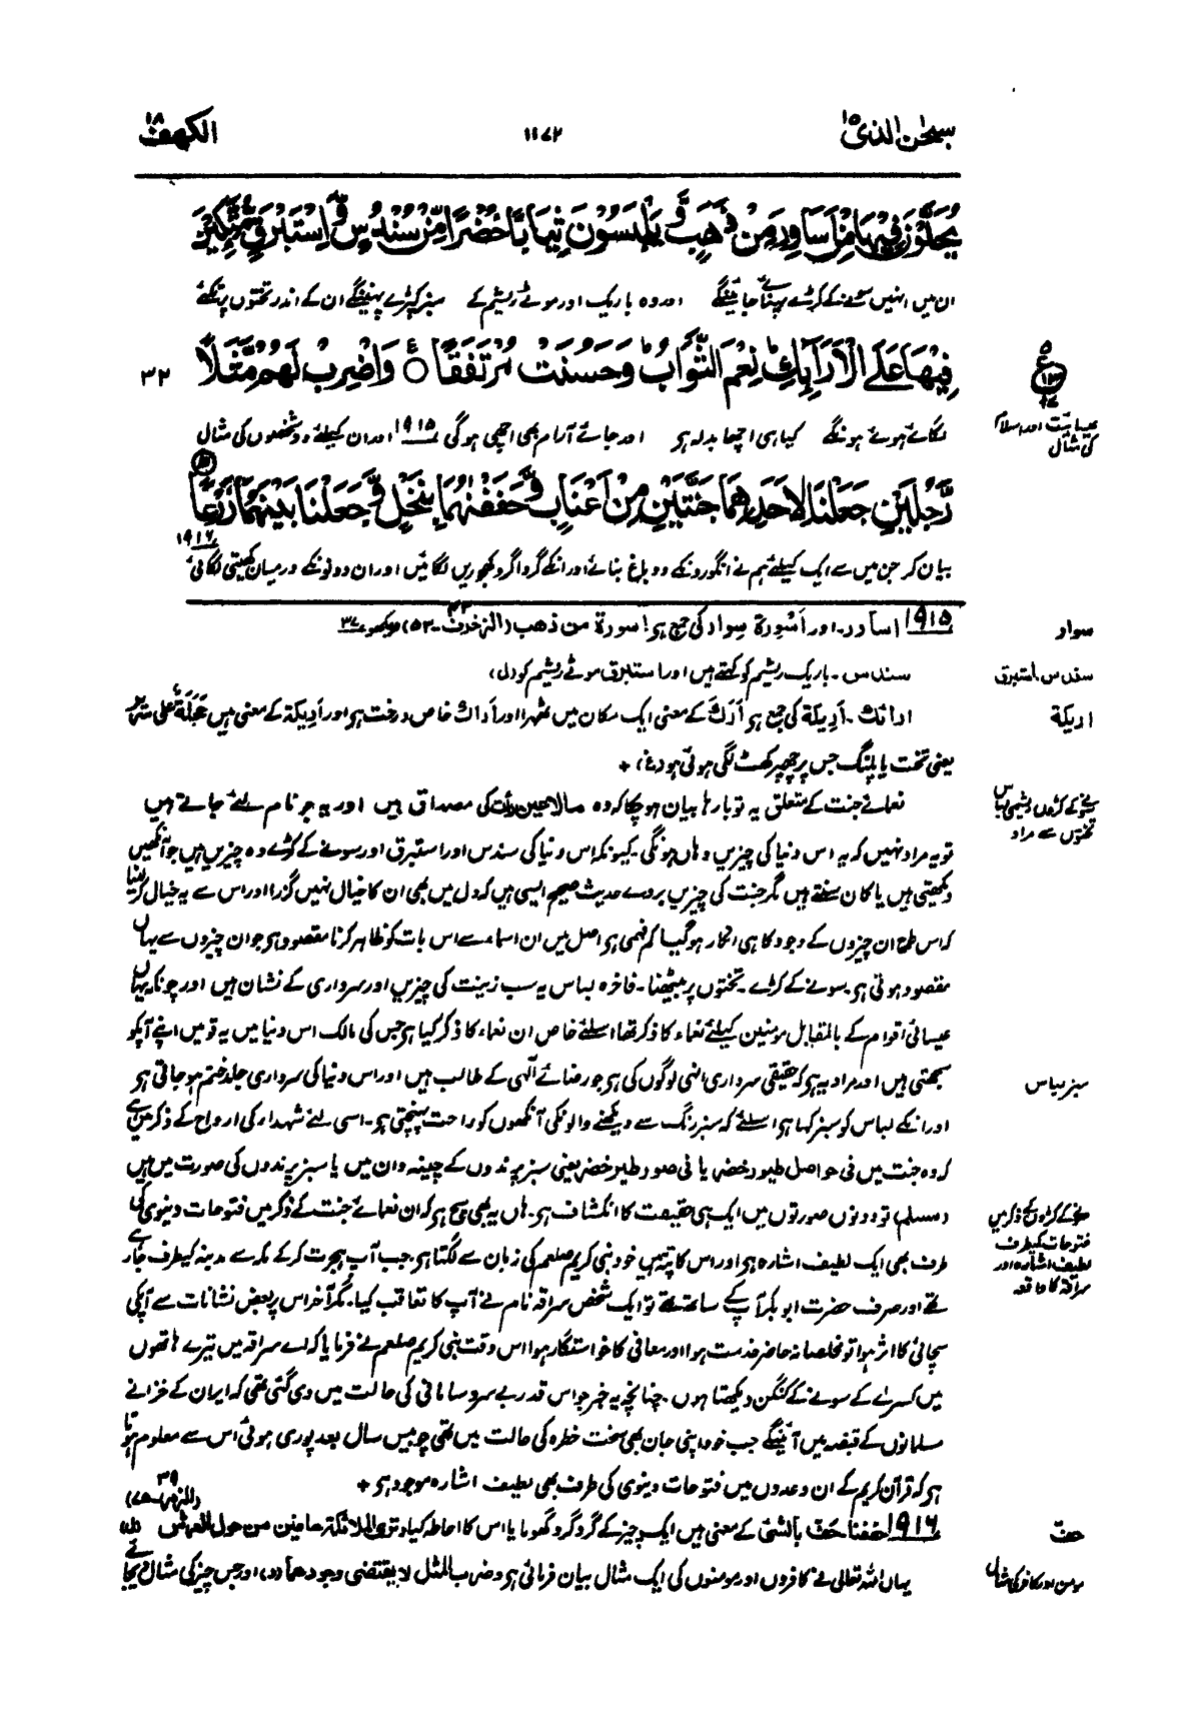 سبحٰن الذی ۱۵
۱۱۷۲
الکھف ۱۸
یُحَلَّوْنَ فِیْهَا مِنْ اَسَاوِرَ مِنْ ذَهَبٍ وَّ یَلْبَسُوْنَ ثِیَابًا خُضْرًا مِّنْ سُنْدُسٍ وَّ اِسْتَبْرَقٍ مُّتَّكِـِٕیْنَ
ان میں انہیں سونے کے کڑے پہنائے جائینگے اور وہ باریک اور موٹے ریشم کے سبز کپڑے پہنینگے ان کے اندر تختوں پر تکئے
فِیْهَا عَلَی الْاَرَآىِٕكِ نِعْمَ الثَّوَابُ وَ حَسُنَتْ مُرْتَفَقًا ۝ وَ اضْرِبْ لَهُمْ مَّثَلًا
۳۲
عیسائیت اور اسلام
کی مثال
لگائے ہوئے ہونگے کیا ہی اچھا بدلہ ہو اور جائے آرام بھی اچھی ہوگی ۱۹۱۵ اور ان کیلئے دو شخصوں کی مثال
رَّجُلَیْنِ جَعَلْنَا لِاَحَدِهِمَا جَنَّتَیْنِ مِنْ اَعْنَابٍ وَّ حَفَفْنٰهُمَا بِنَخْلٍ وَّ جَعَلْنَا بَیْنَهُمَا زَرْعًا
۱۹۱۶
بیان کر جن میں سے ایک کیلئے ہم نے انگورونکے دو باغ بنائے اور انکے گرد اگرد کھجوریں لگائیں اور ان دونونکے درمیان کھیتی لگائی
سوار
۱۹۱۵ اساور۔ اور اَسْوِرة سِوار کی جمع ہو اسورة من ذهب (الزخرف ۴۳-۵۳) دیکھو
سندس استبرق
سندس۔ باریک ریشم کو کہتے ہیں اور استبرق موٹے ریشم کو (ل)
اریکة
ارائك۔ اَریکة کی جمع ہو اَرَكَ کے معنی ایک مکان میں ٹھہرا اور اَراك خاص درخت ہو اور اَریکة کے معنی ہیں حَجَلَة علی سریر
یعنی تخت یا پلنگ جس پر چھپر کھٹ لگی ہوئی ہو (غ) +
سونے کے کڑوں ریشمی لباس
تختوں سے مراد
نعمائے جنت کے متعلق یہ تو بارہا بیان ہو چکا کہ وہ مالا عین رأت کی مصداق ہیں اور یہ جو نام لئے جاتے ہیں
تو یہ مراد نہیں کہ یہ اس دنیا کی چیزیں وہاں ہونگی۔ کیونکہ اس دنیا کی سندس اور استبرق اور سونے کے کڑے وہ چیزیں ہیں جو آنکھیں
دیکھتی ہیں یا کان سنتے ہیں مگر جنت کی چیزیں بروے حدیث صحیح ایسی ہیں کہ دل میں بھی ان کا خیال نہیں گزرا اور اس سے یہ خیال کر لینا
کہ اس طرح ان چیزوں کے وجود کا ہی انکار ہو گیا کم فہمی ہو اصل میں ان اسماء سے اس بات کو ظاہر کرنا مقصود ہو جو ان چیزوں سے یہاں
مقصود ہوتی ہو۔ سونے کے کڑے۔ تختوں پر بیٹھنا۔ فاخرہ لباس یہ سب زینت کی چیزیں اور سرداری کے نشان ہیں اور چونکہ یہاں
عیسائی اقوام کے بالمقابل مومنین کیلئے نعماء کا ذکر تھا اسلئے خاص ان نعماء کا ذکر کیا ہو جس کی مالک اس دنیا میں یہ قومیں اپنے آپکو
سبز لباس
سمجھتی ہیں اور مراد یہ ہو کہ حقیقی سرداری انہی لوگوں کی ہو جو رضائے الٰہی کے طالب ہیں اور اس دنیا کی سرداری جلد ختم ہو جاتی ہو
اور انکے لباس کو سبز کہا ہو اسلئے کہ سبز رنگ سے دیکھنے والونکی آنکھوں کو راحت پہنچتی ہو۔ اسی لئے شہداء کی ارواح کے ذکر میں ہے
کہ وہ جنت میں فی حواصل طیور خضر یا فی صور طیر خضر یعنی سبز پرندوں کے چینہ دان میں یا سبز پرندوں کی صورت میں ہیں
سونے کے کڑوں کے ذکر میں
فتوحات کیطرف
لطیف اشارہ اور
سراقہ کا واقعہ
(مسلم) تو دونوں صورتوں میں ایک ہی حقیقت کا انکشاف ہو۔ ہاں یہ بھی سچ ہو کہ ان نعمائے جنت کے ذکر میں فتوحات دنیوی کی
طرف بھی ایک لطیف اشارہ ہو اور اس کا پتہ ہمیں خود نبی کریم صلعم کی زبان سے لگتا ہو۔ جب آپ ہجرت کرکے مکہ سے مدینہ کیطرف جا رہے
تھے اور صرف حضرت ابوبکر آپ کے ساتھ تھے تو ایک شخص سراقہ نام نے آپ کا تعاقب کیا۔ مگر آخر اس پر بعض نشانات سے آپکی
سچائی کا اثر ہوا تو مخلصانہ حاضر خدمت ہوا اور معافی کا خواستگار ہوا اس وقت نبی کریم صلعم نے فرمایا کہ اے سراقہ میں تیرے ہاتھوں
میں کسرے کے سونے کے کنگن دیکھتا ہوں۔ چنانچہ یہ خبر جو اس قدر بے سرو سامانی کی حالت میں دی گئی تھی کہ ایران کے خزانے
مسلمانوں کے قبضہ میں آئینگے جب خود اپنی جان بھی سخت خطرہ کی حالت میں تھی چوبیس سال بعد پوری ہوئی اس سے معلوم ہوتا
ہو کہ قرآن کریم کے ان وعدوں میں فتوحات دنیوی کی طرف بھی لطیف اشارہ موجود ہو +
(الزمر ۳۹-۷۵)
حفّ
۱۹۱۶ حففنا حفّ بالشئ کے معنی ہیں ایک چیز کے گرد گرد گھوما یا اس کا احاطہ کیا وتری الملائکة حافین من حول العرش (ل)
مومن اور کافر کی مثال
یہاں اللہ تعالیٰ نے کافروں اور مومنوں کی ایک مثال بیان فرمائی ہو وضرب المثل لا یقتضی وجودھما (ر) اور جس چیز کی مثال دی جائے